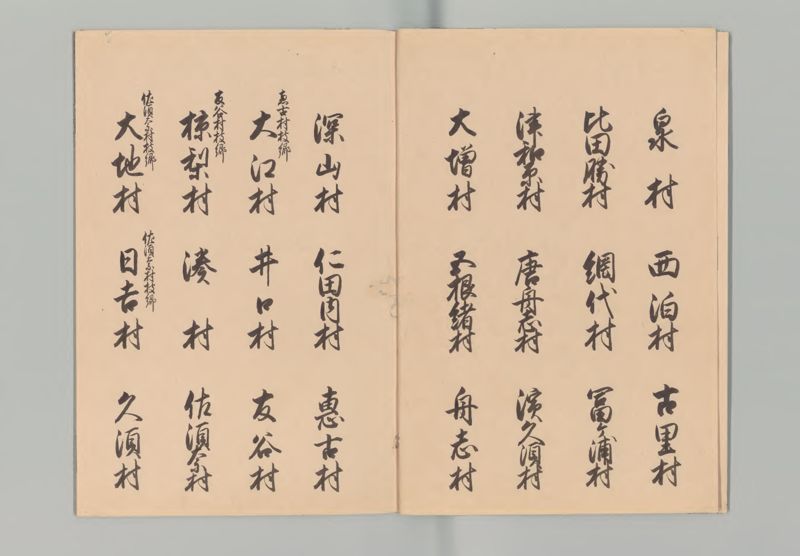 泉村 西泊村 古里村
比田勝村 網代村 冨ケ浦村
津和村 唐舟志村 濱久須村
大増村 五根緒村 舟志村
深山村 仁田内村 惠古村
惠古村枝郷
大江村 井口村 友谷村
友谷村枝郷
椋梨村 湊村 佐須奈村
佐須奈村枝郷 佐須奈村枝郷
大地村 日吉村 久須村